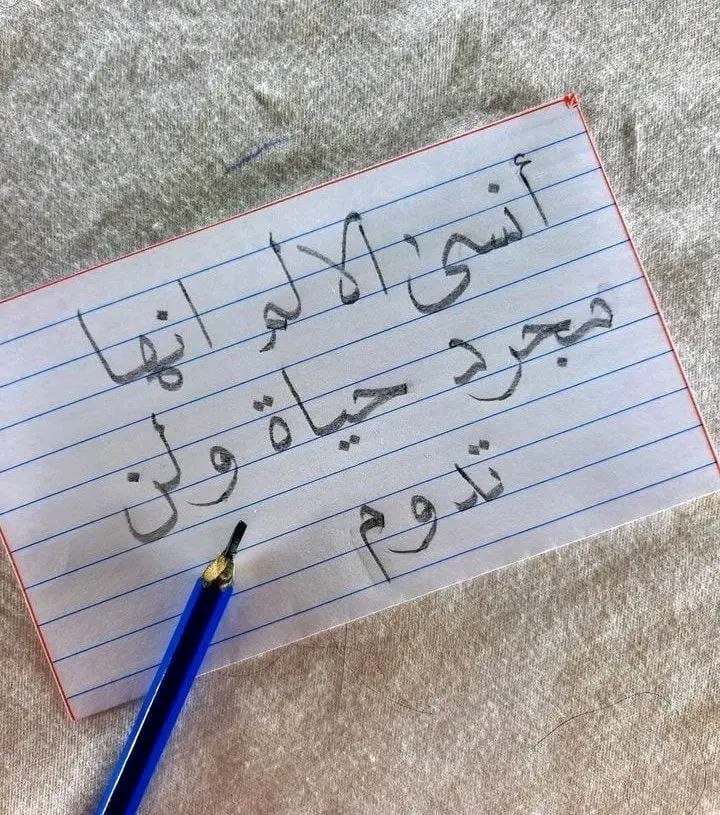 أنسىٰ الالم انها
مجرد حياة ولن
تدوم